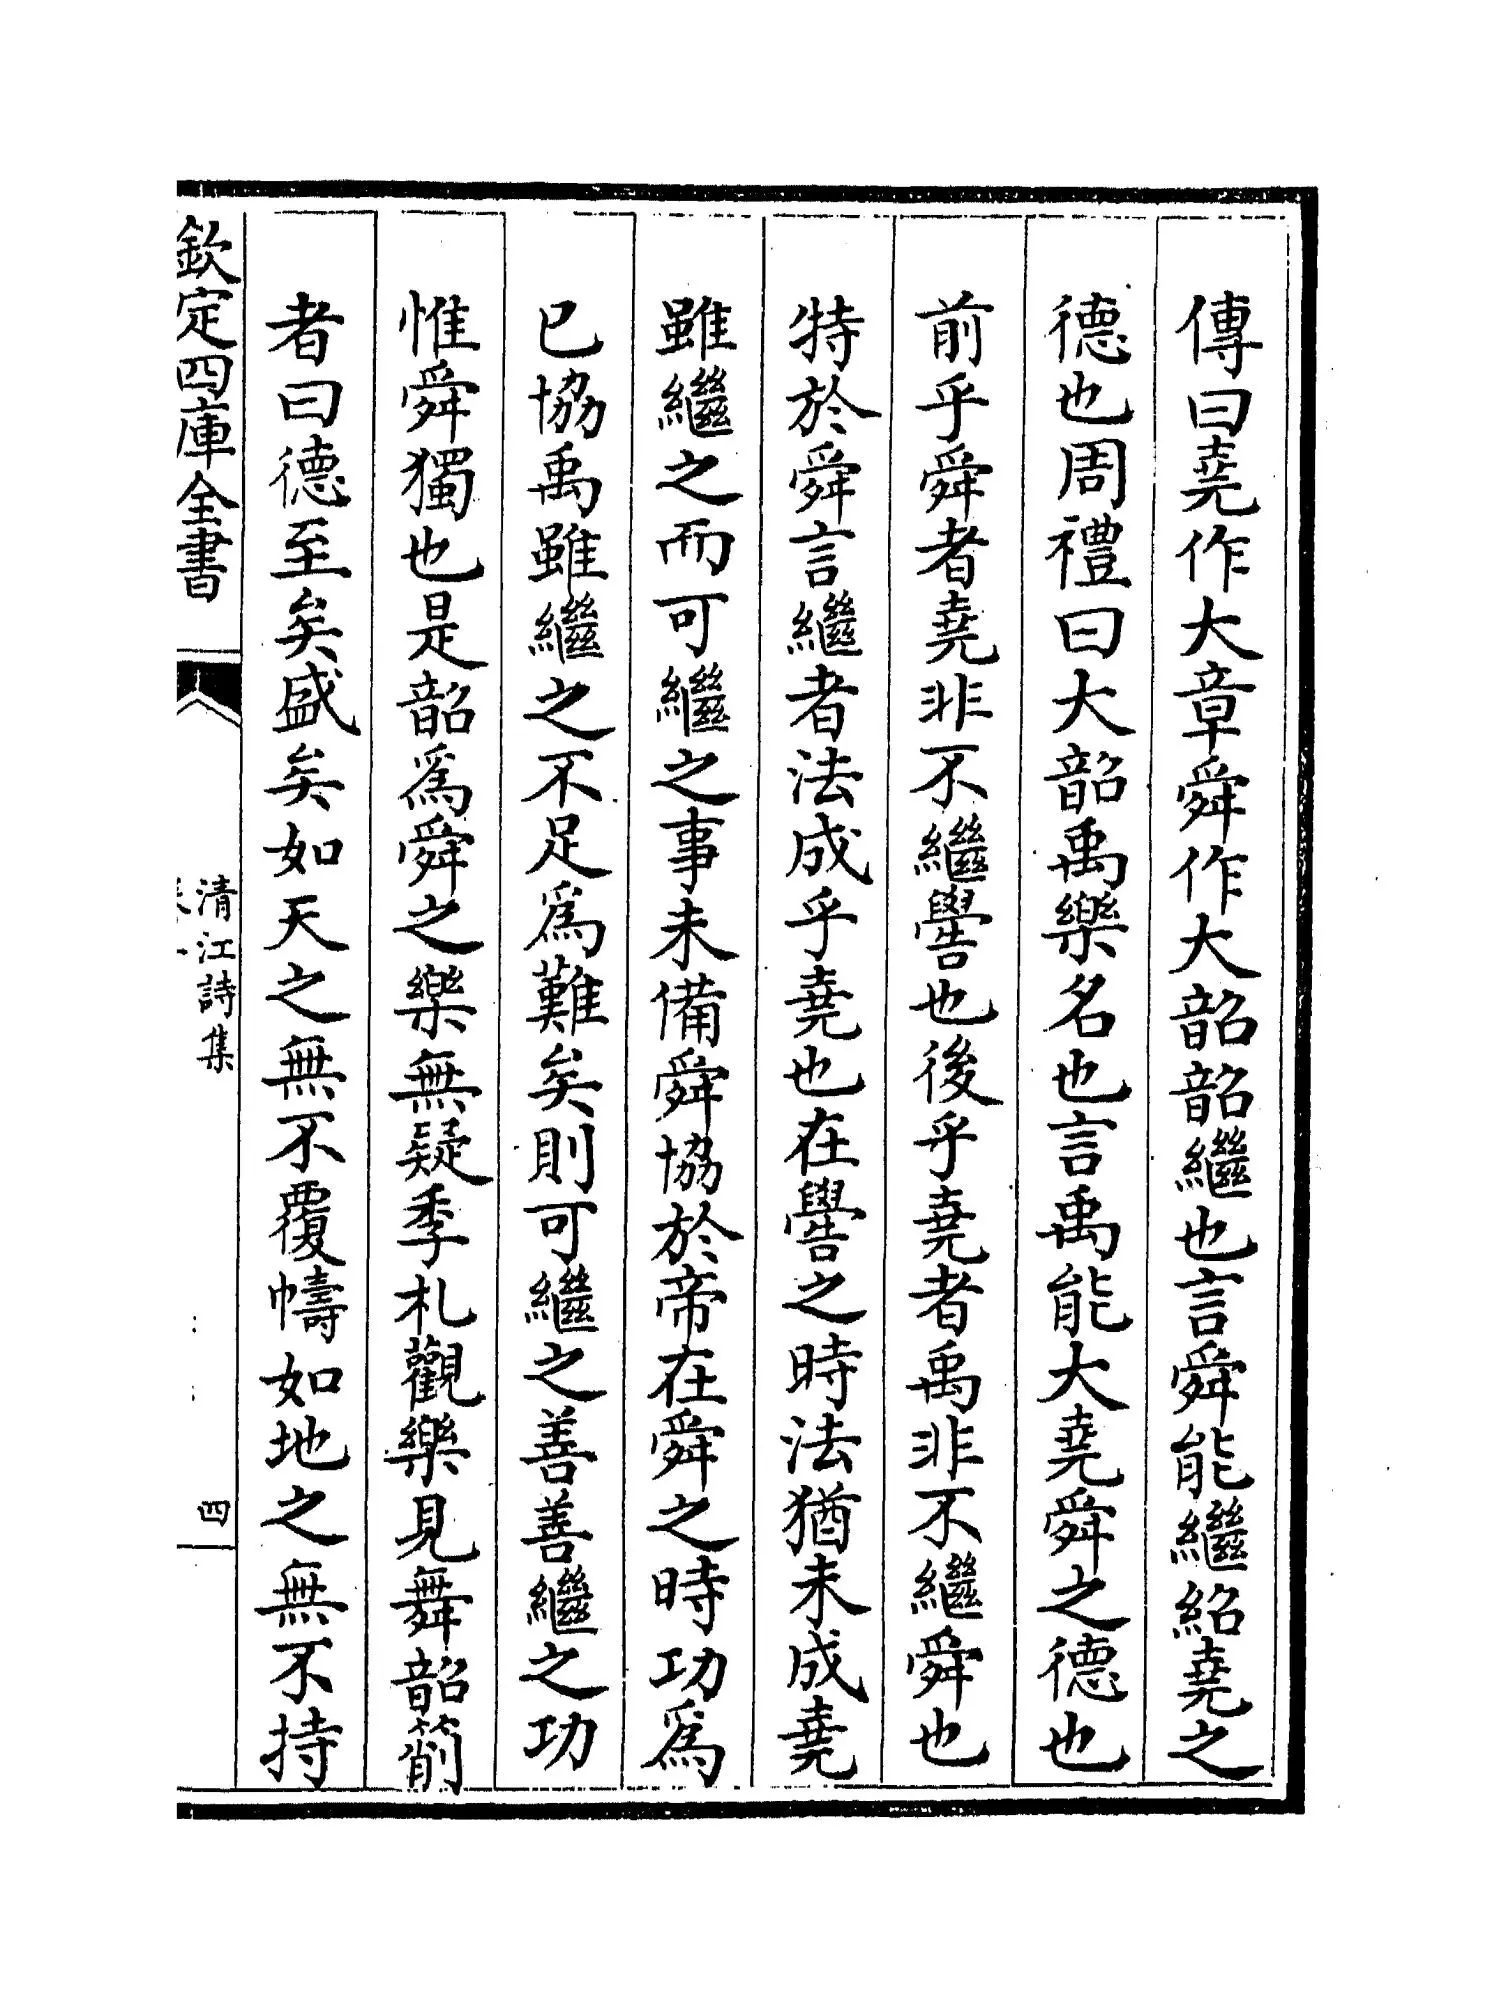 傳曰堯作大章舜作大韶韶繼也言舜能繼紹堯之
德也周禮曰大韶禹樂名也言禹能大堯舜之德也
前乎舜者堯非不繼嚳也後乎堯者禹非不繼舜也
特於舜言繼者法成乎堯也在嚳之時法猶未成堯
雖繼之而可繼之事未備舜協於帝在舜之時功爲
已協禹雖繼之不足爲難矣則可繼之善善繼之功
惟舜獨也是韶爲舜之樂無疑季札觀樂見舞韶箾
者曰德至矣盛矣如天之無不覆幬如地之無不持
欽定四庫全書
清江詩集
四